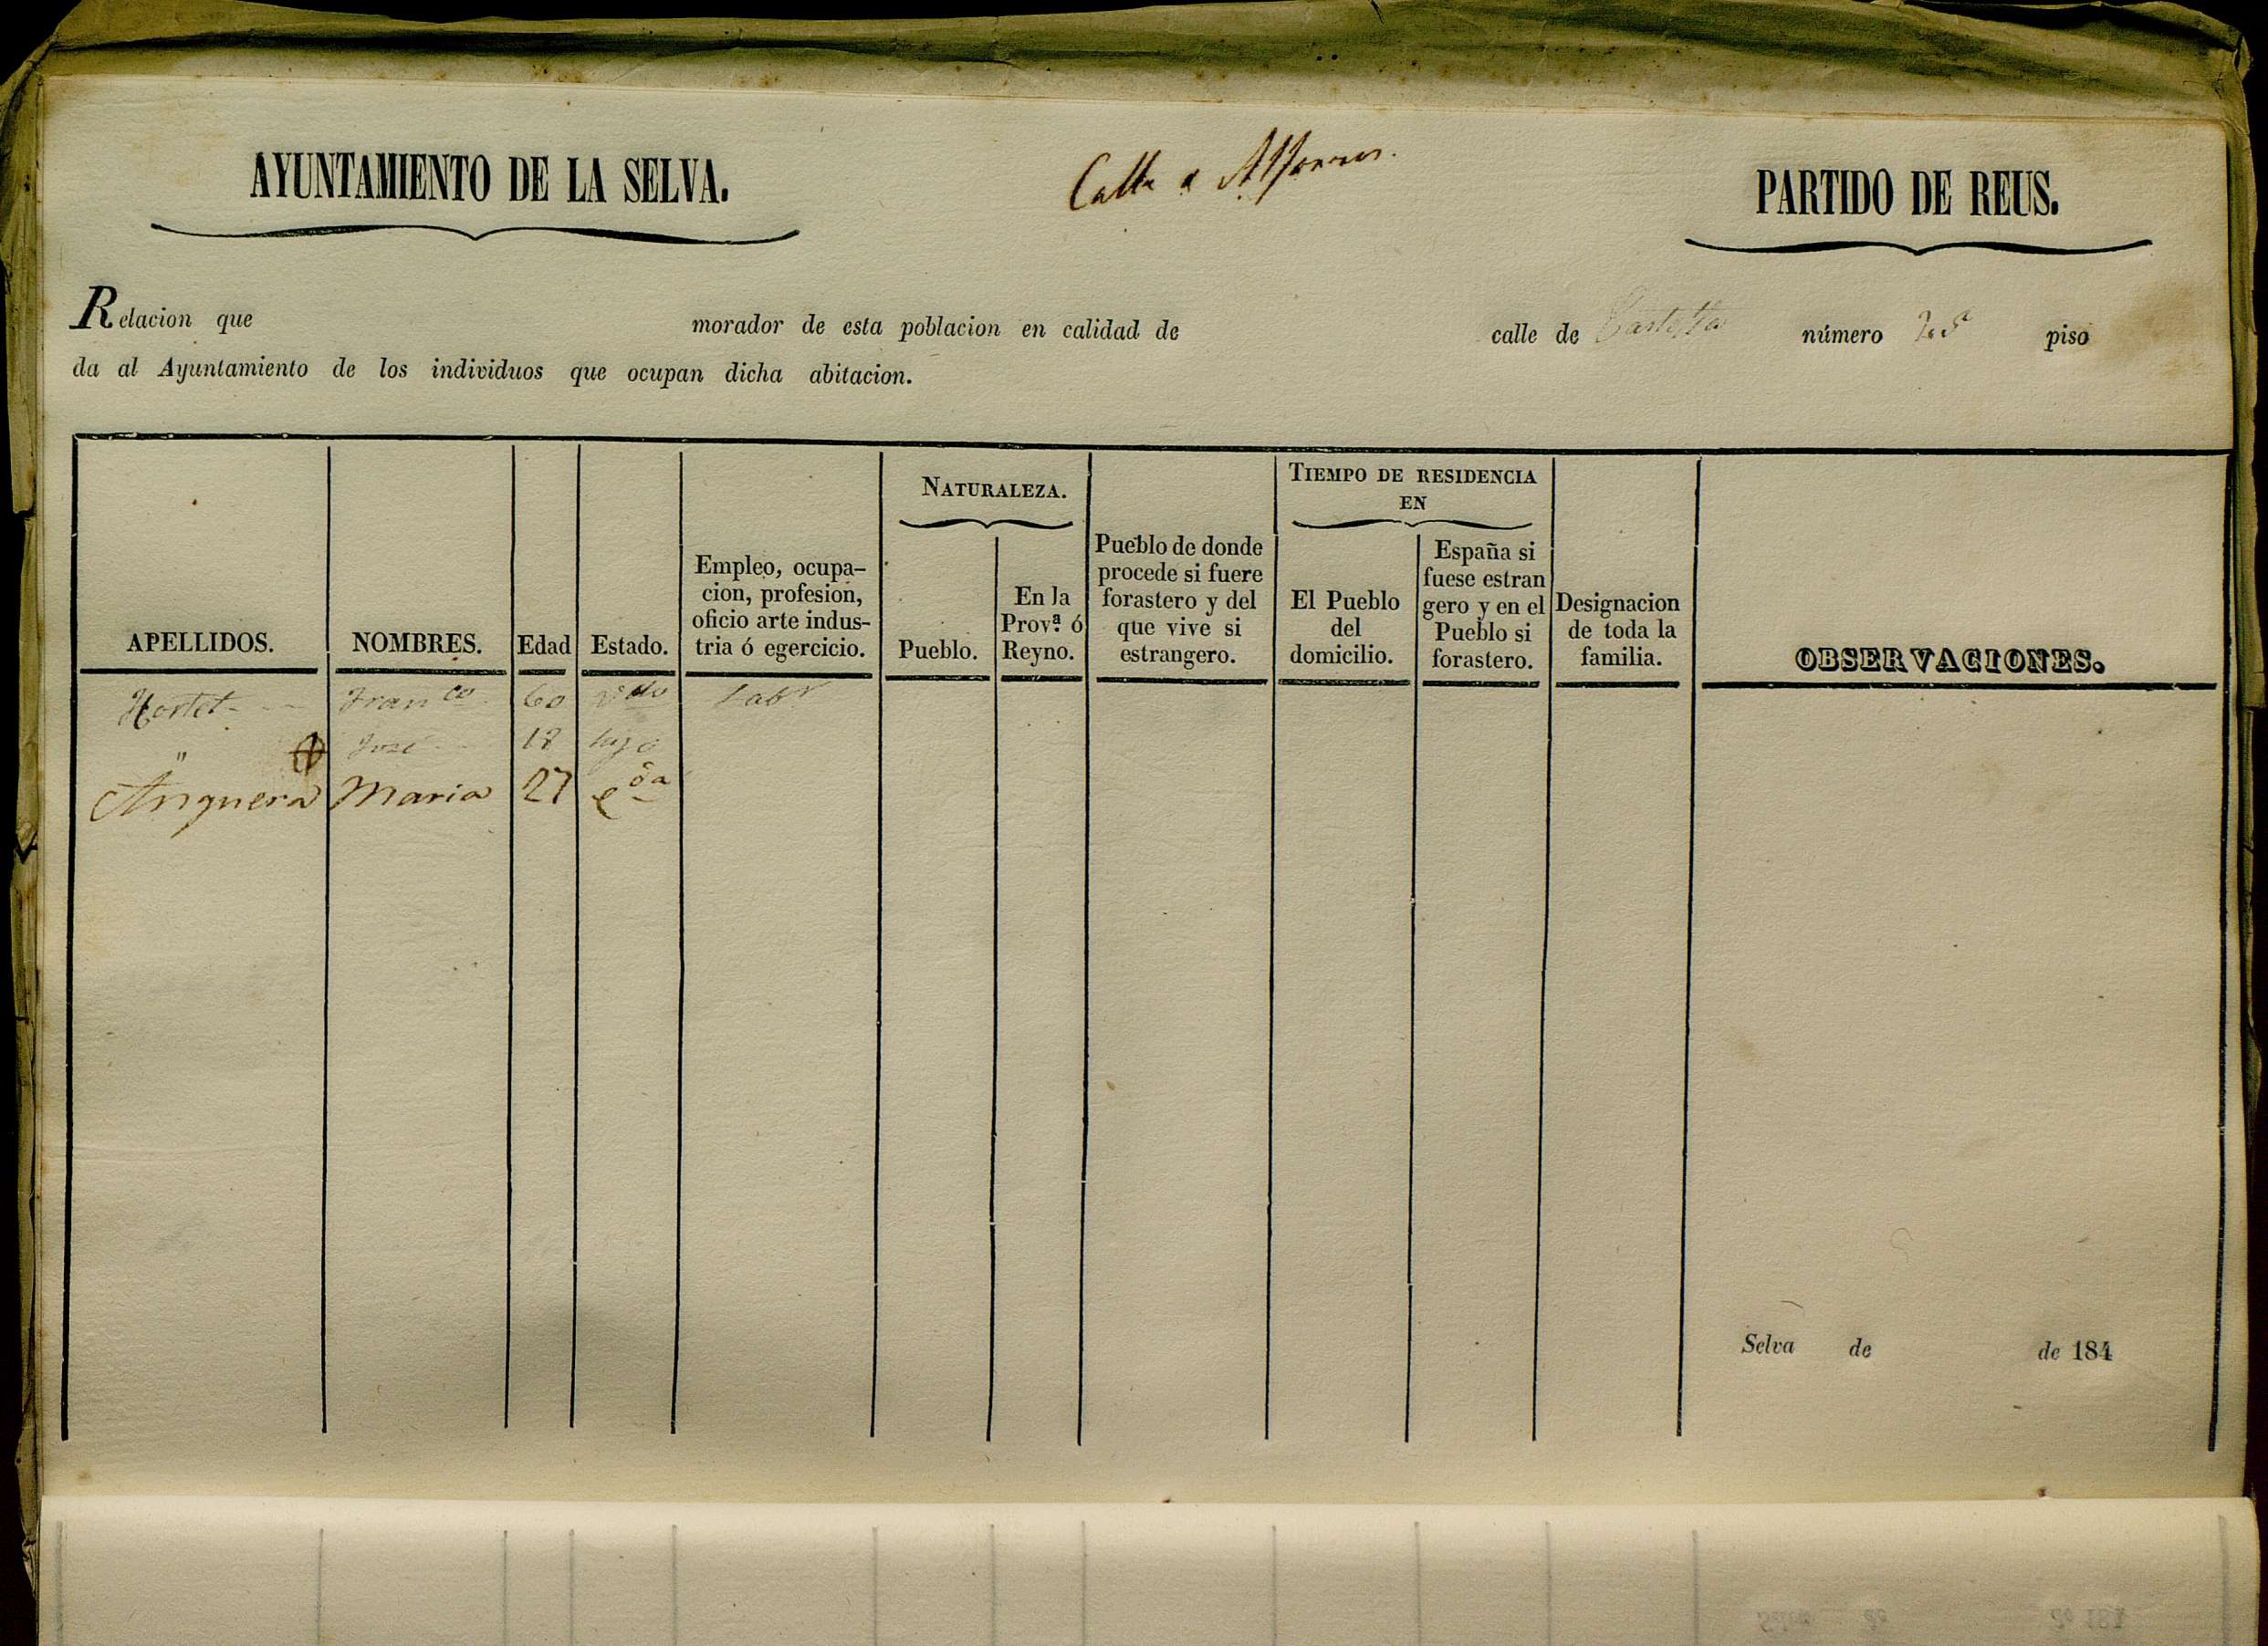 AYUNTAMIENTO DE LA SELVA.
Calle a
PARTIDO DE REUS.
Relacion que morador de esta poblacion en calidad de calle de número piso
da al Ayuntamiento de los individuos que ocupan dicha abitacion.
APELLIDOS.
NOMBRES.
Edad
Estado.
Empleo, ocupa-
cion, profesion,
oficio arte indus-
tria ó egercicio.
NATURALEZA.
Pueblo.
En la
Prov.ª ó
Reyno.
Pueblo de donde
procede si fuere
forastero y del
que vive si
estrangero.
TIEMPO DE RESIDENCIA
EN
El Pueblo
del
domicilio.
España si
fuese estran
gero y en el
Pueblo si
forastero.
Designacion
de toda la
familia.
OBSERVACIONES.
Hortet Fran.co 60 v.do Lab.r
" José 18 hijo
Anguera Maria 27
Selva de de 184